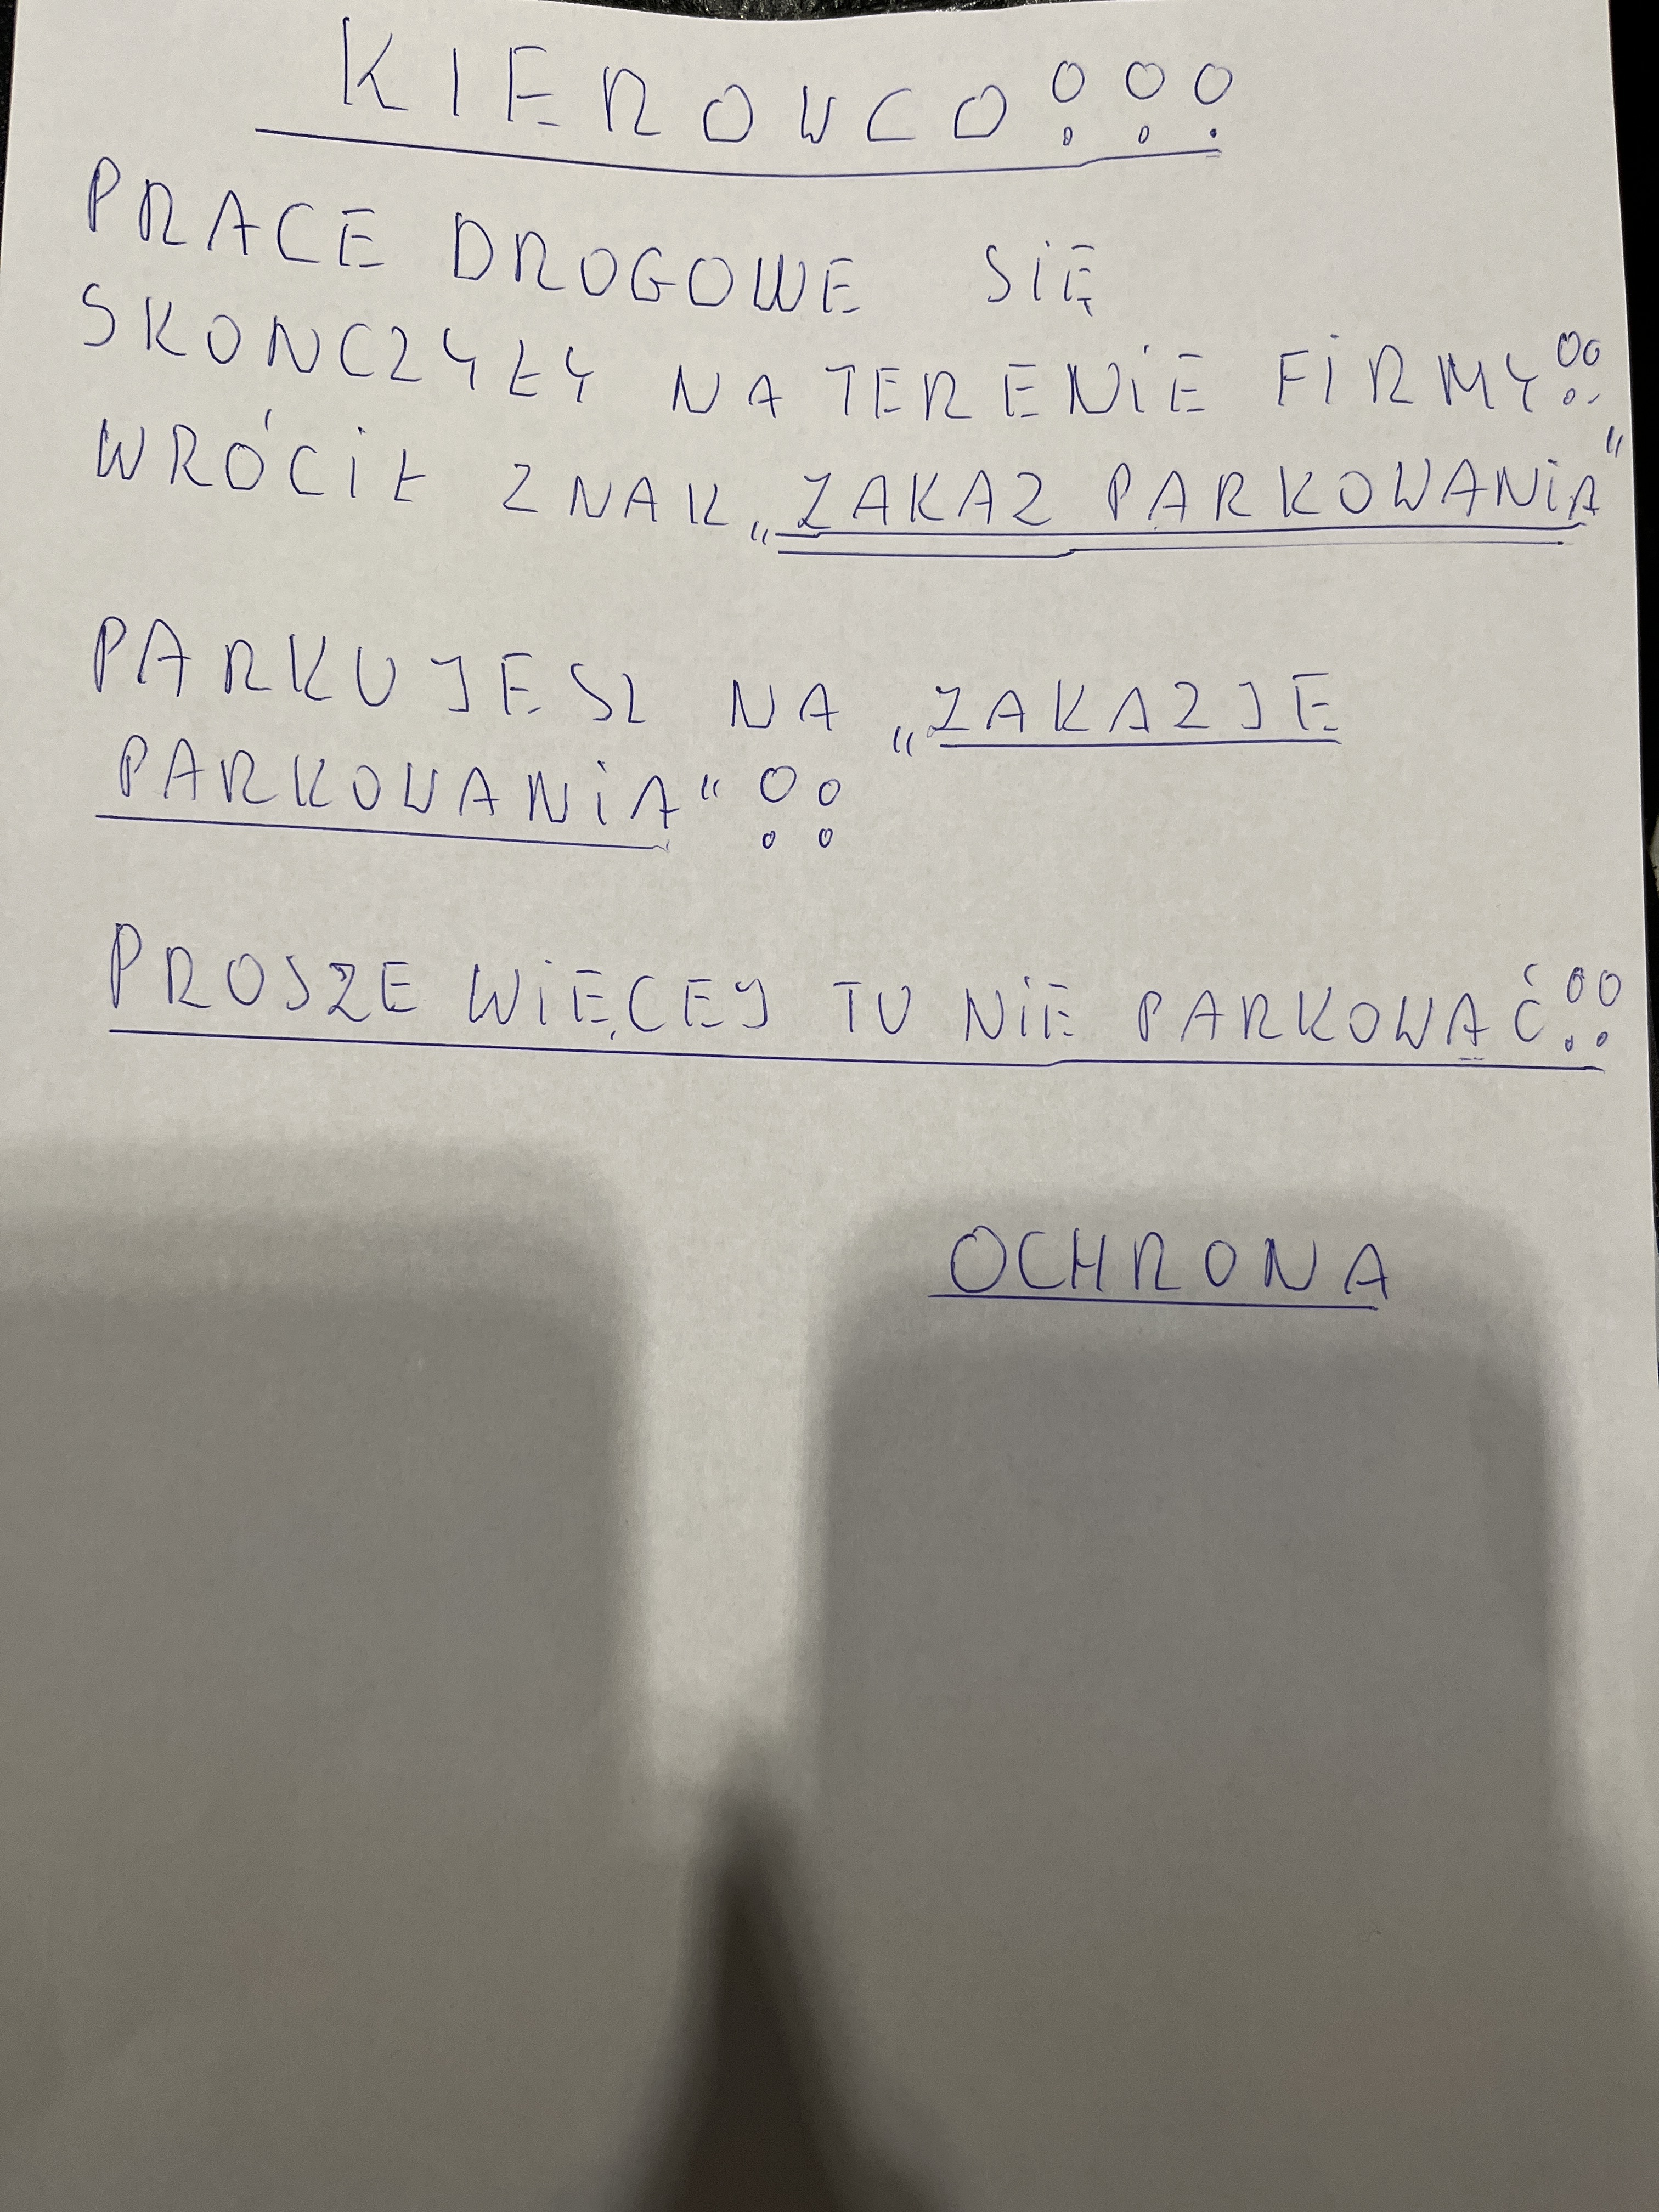 KIEROWCO!!!
PRACE DROGOWE SIĘ
SKONCZYŁY NA TERENIE FIRMY!!
WRÓCIŁ ZNAK „ZAKAZ PARKOWANIA"
PARKUJESZ NA „ZAKAZJE
PARKOWANIA" !!
PROSZE WIĘCEJ TU NIE PARKOWAĆ!!
OCHRONA